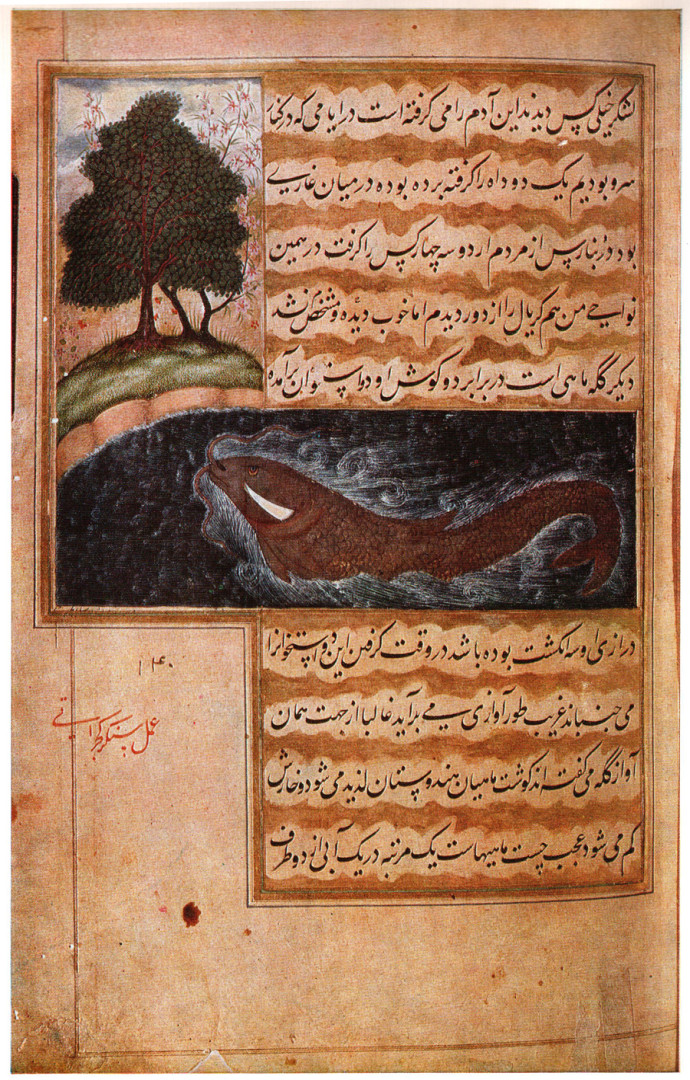 لشکر خیلی کس دیدند این آدم را می گرفته است در ایامی که در کنار
سرو بودیم یک دو داه را گرفته برده بوده در میان غازی
بود و بنارس از مردم اردو سه چهار کس را گرفت در همین
نواحی من هم گریال را از دور دیدم اما خوب دیده و مشخص نشد
دیگر گله ماهی است در برابر دو گوش او دو استخوان برآمده
درازی او سه انگشت بوده باشد در وقت گرفتن این دو استخوانرا
می جنباند غریب طور آوازی می برآید غالبا از جهت همان
آواز گله می گفته اند گوشت ماهیان هندوستان لذیذ می شود و خارش
کم می شود عجب چست ماهیهاست یک مرتبه در یک آبی از دو طرف
۱۴۰
عمل سنکر گجراتی